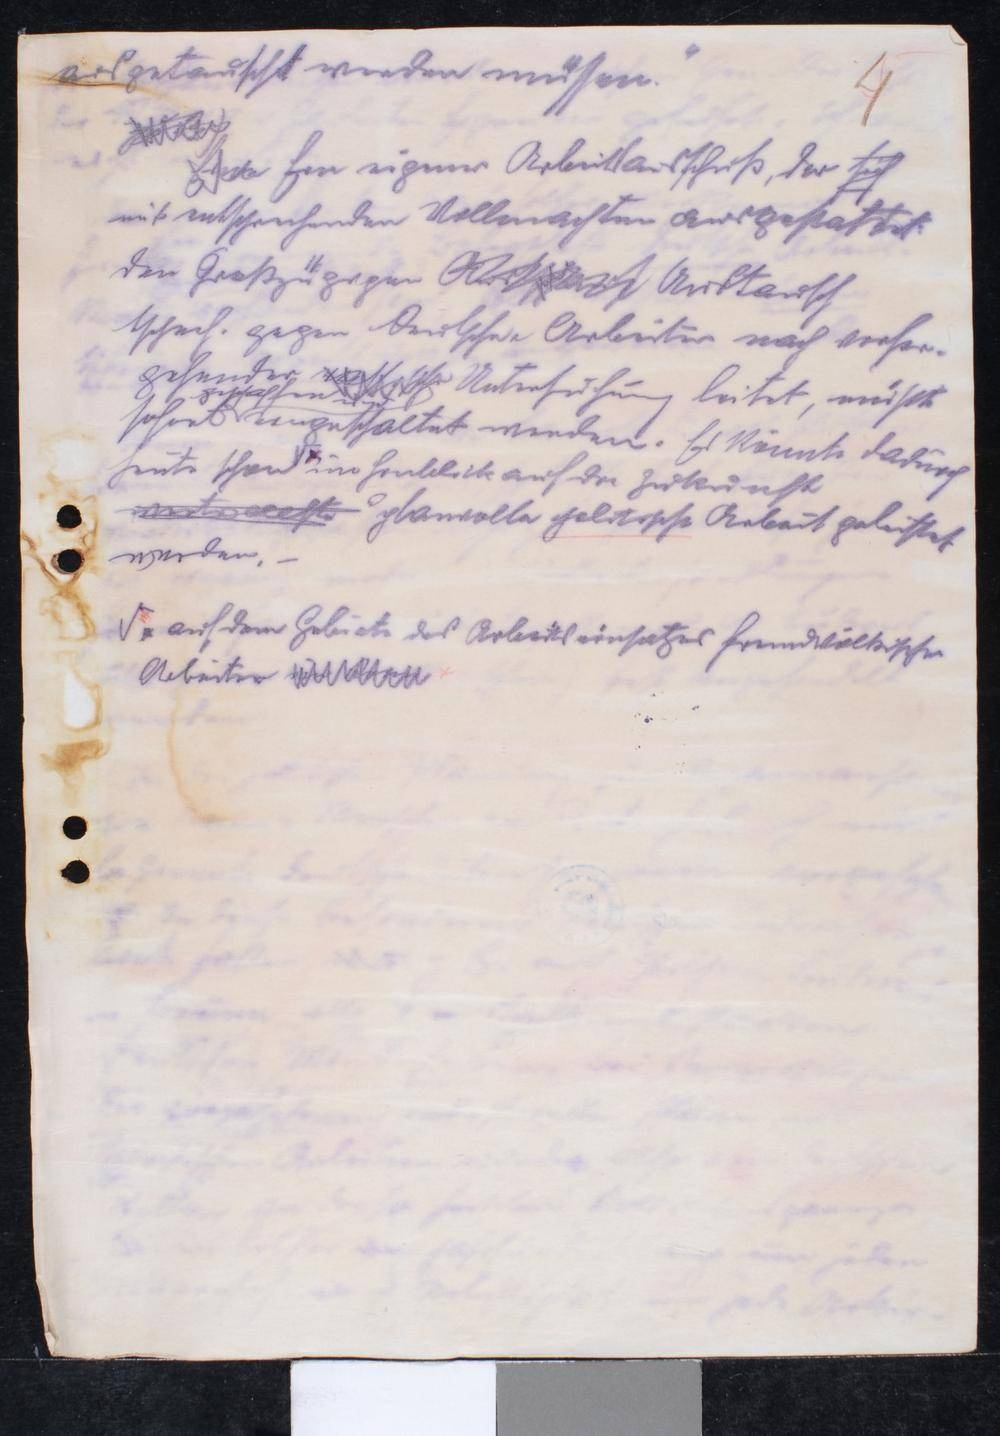 ausgetauscht werden müssen."
4
Ein eigener Arbeitsausschuß, der
mit entsprechenden Vollmachten ausgestattet
den Großzügigen Austausch
tschech. gegen Deutsche Arbeiter nach vorher-
gehender Untersuchung leitet, müßte
geschaffen und
sofort eingeschaltet werden. Es könnte dadurch
heute schon im Hinblick auf die Zukunft
planvolle politische Arbeit geleistet
werden. –
auf dem Gebiete des Arbeitseinsatzes fremdvölkischer
Arbeiter